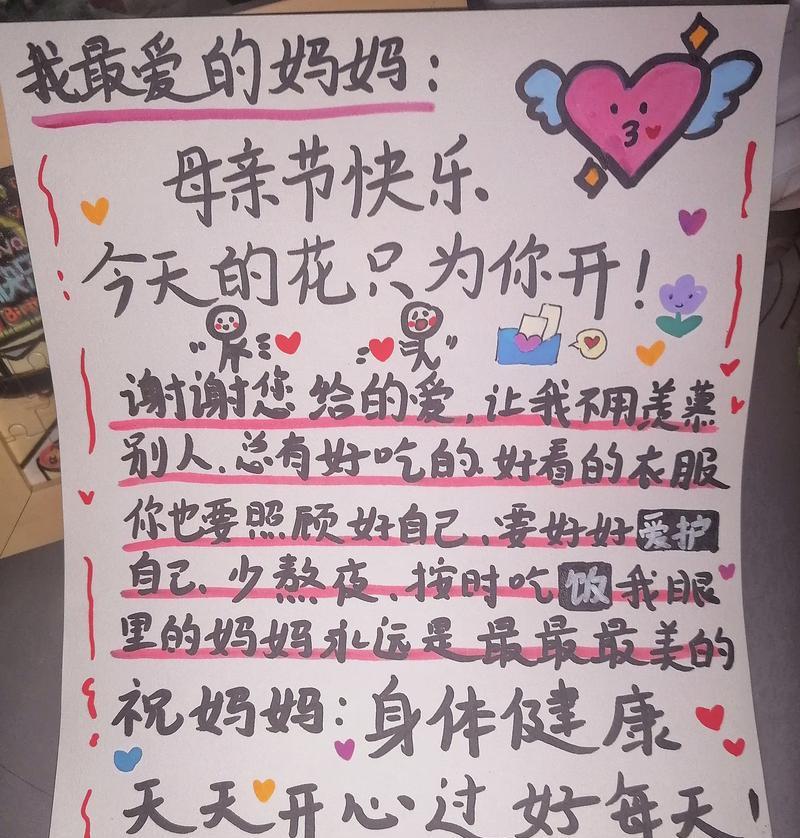 我最爱的妈妈：
母亲节快乐
今天的花只为你开！
谢谢您给的爱，让我不用羡慕
别人、总有好吃的、好看的衣服
你也要照顾好自己、要好好爱护
自己、少熬夜、按时吃饭我眼
里的妈妈永远是最最最美的
祝妈妈：身体健康
天天开心过好每天！